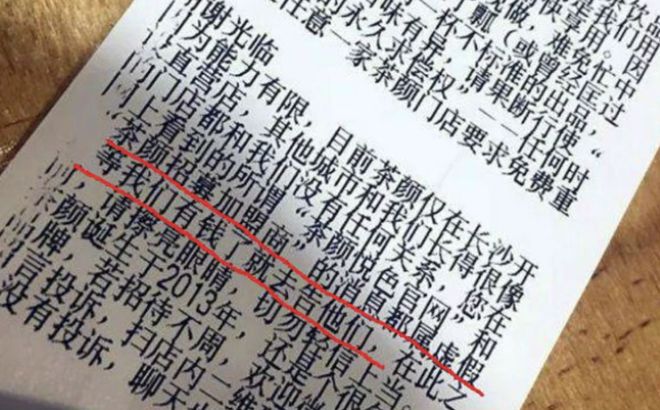 饮品用
我们因
做，难免忙中
瓢（或曾经匡过
一杯不标准的出品，
味有异，请果断行使“
的永久求偿权”——任何时
任意一家茶颜门店要求免费重
谢光临
为能力有限，目前茶颜仅在长沙开
直营店，其他城市和我们长得很像
门店都和我们没有任何关系，您在
上看到的所谓“茶颜悦色官网”和
茶颜招募加盟商”的消息都属虚假
等我们有钱了就去告他们，在此之
，请擦亮眼睛，切勿轻信上当。
颜诞生于2013年，还是
牌，若招待不周，欢迎
言投诉，扫店内二维
没有投诉，聊天